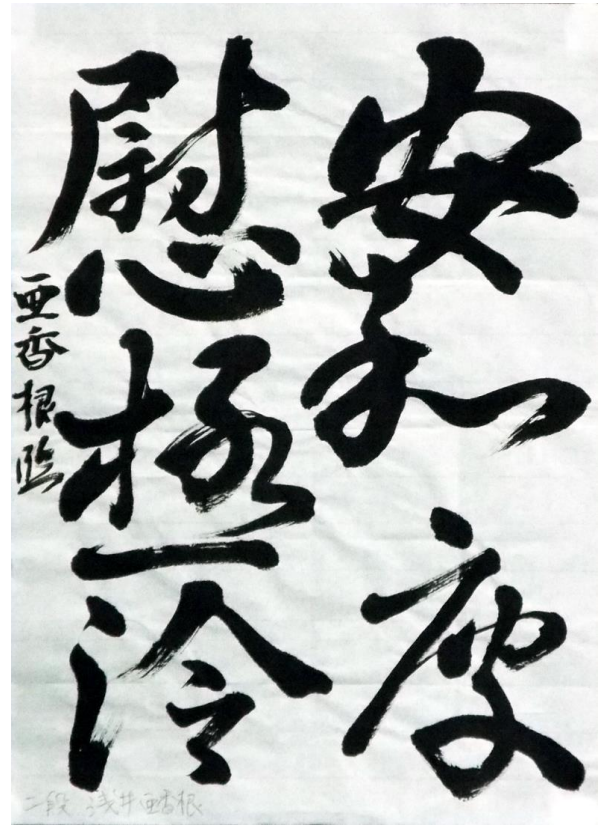 安和度
慰極冷
亜香根臨
二段 浅井亜香根